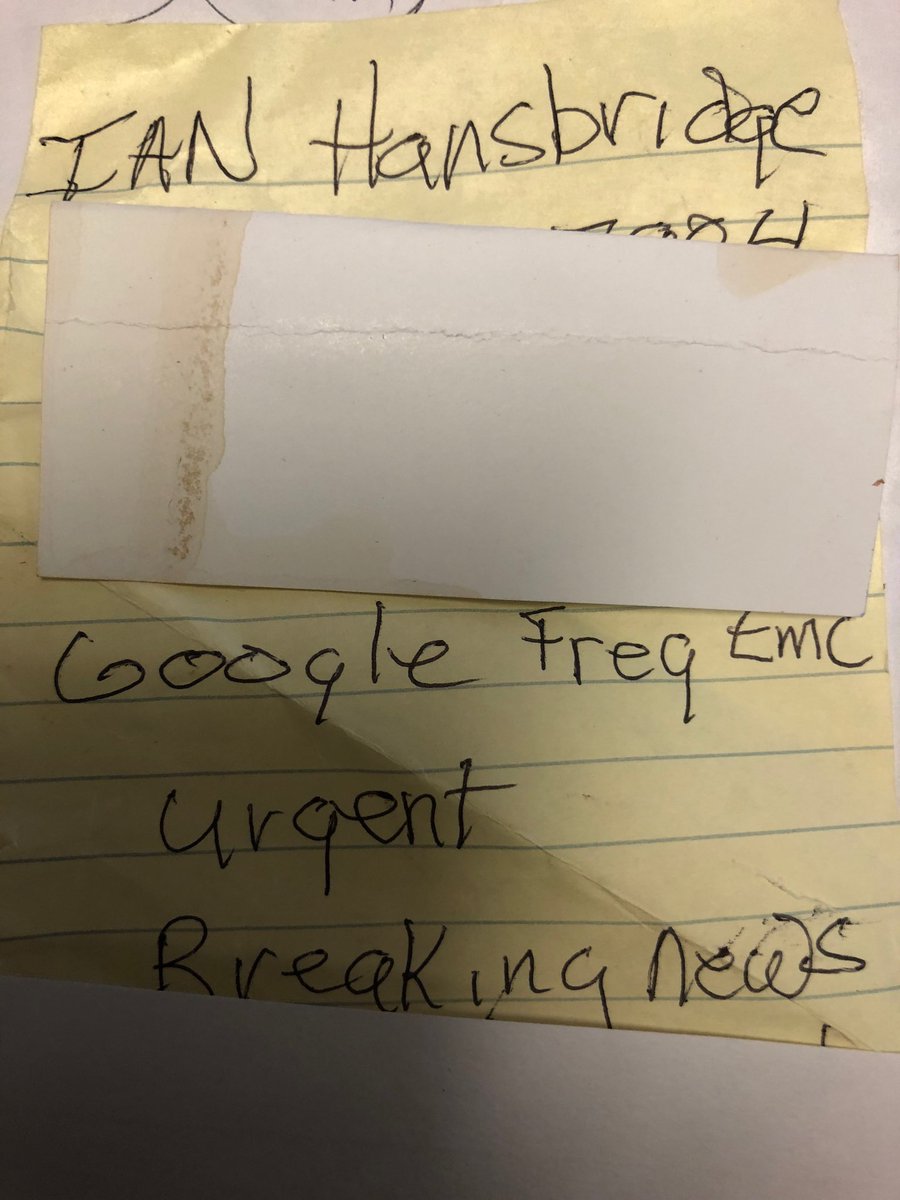 IAN Hansbridge
Google Freq EMC
urgent
Breaking news